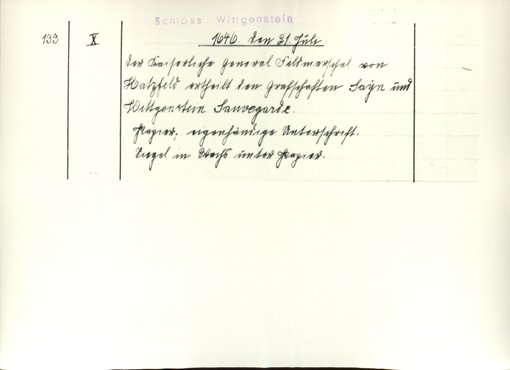 Schloss Wittgenstein
133 X 1646. den 21. Juli.
Der Kaiserliche General Feldmarschal von
Hatzfeld ertheilt den Grafschaften Sayn und
Wittgenstein Sauvegarde.
Papier; eigenhändige Unterschrift.
Siegel in Wachs unter Papier.